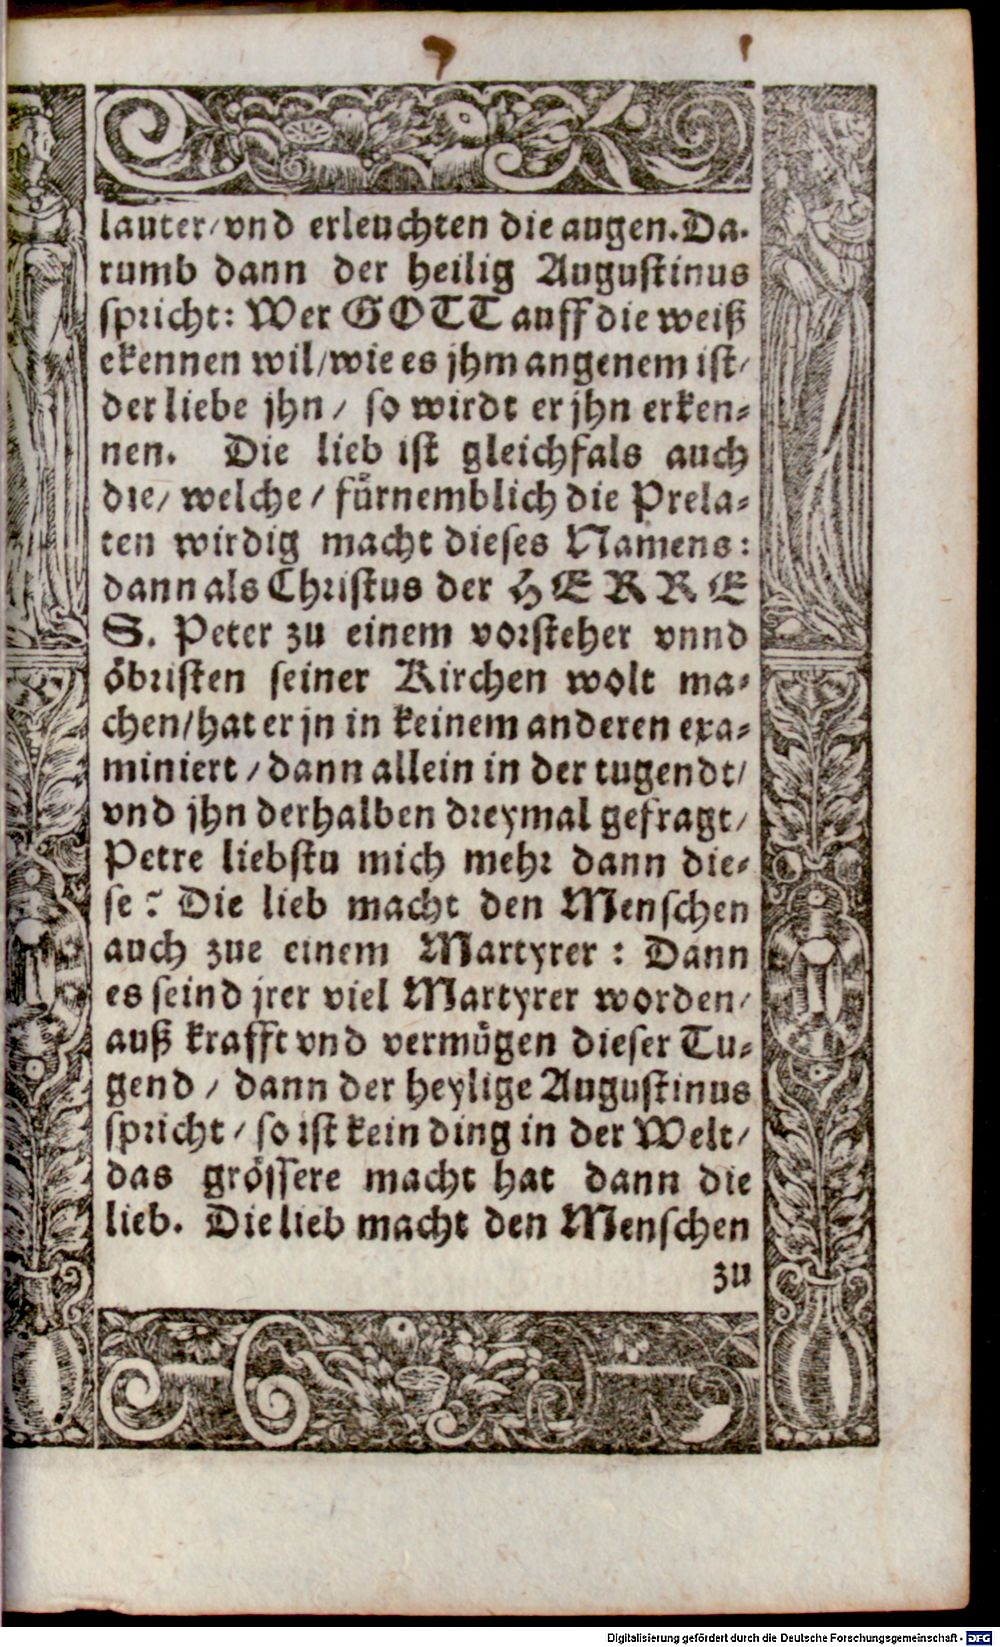 lauter/vnd erleuchten die augen. Da-
rumb dann der heilig Augustinus
spricht: Wer GOTT auff die weiß
ekennen wil/wie es jhm angenem ist/
der liebe jhn/ so wirdt er jhn erken-
nen. Die lieb ist gleichfals auch
die/ welche/ fürnemblich die Prela-
ten wirdig macht dieses Namens:
dann als Christus der HERRE
S. Peter zu einem vorsteher vnnd
öbristen seiner Kirchen wolt ma-
chen/hat er jn in keinem anderen exa-
miniert/dann allein in der tugendt/
vnd jhn derhalben dreymal gefragt/
Petre liebstu mich mehr dann die-
se? Die lieb macht den Menschen
auch zue einem Martyrer: Dann
es seind jrer viel Martyrer worden/
auß krafft vnd vermügen dieser Tu-
gend/ dann der heylige Augustinus
spricht/ so ist kein ding in der Welt/
das grössere macht hat dann die
lieb. Die lieb macht den Menschen
zu
Digitalisierung gefördert durch die Deutsche Forschungsgemeinschaft - DFG